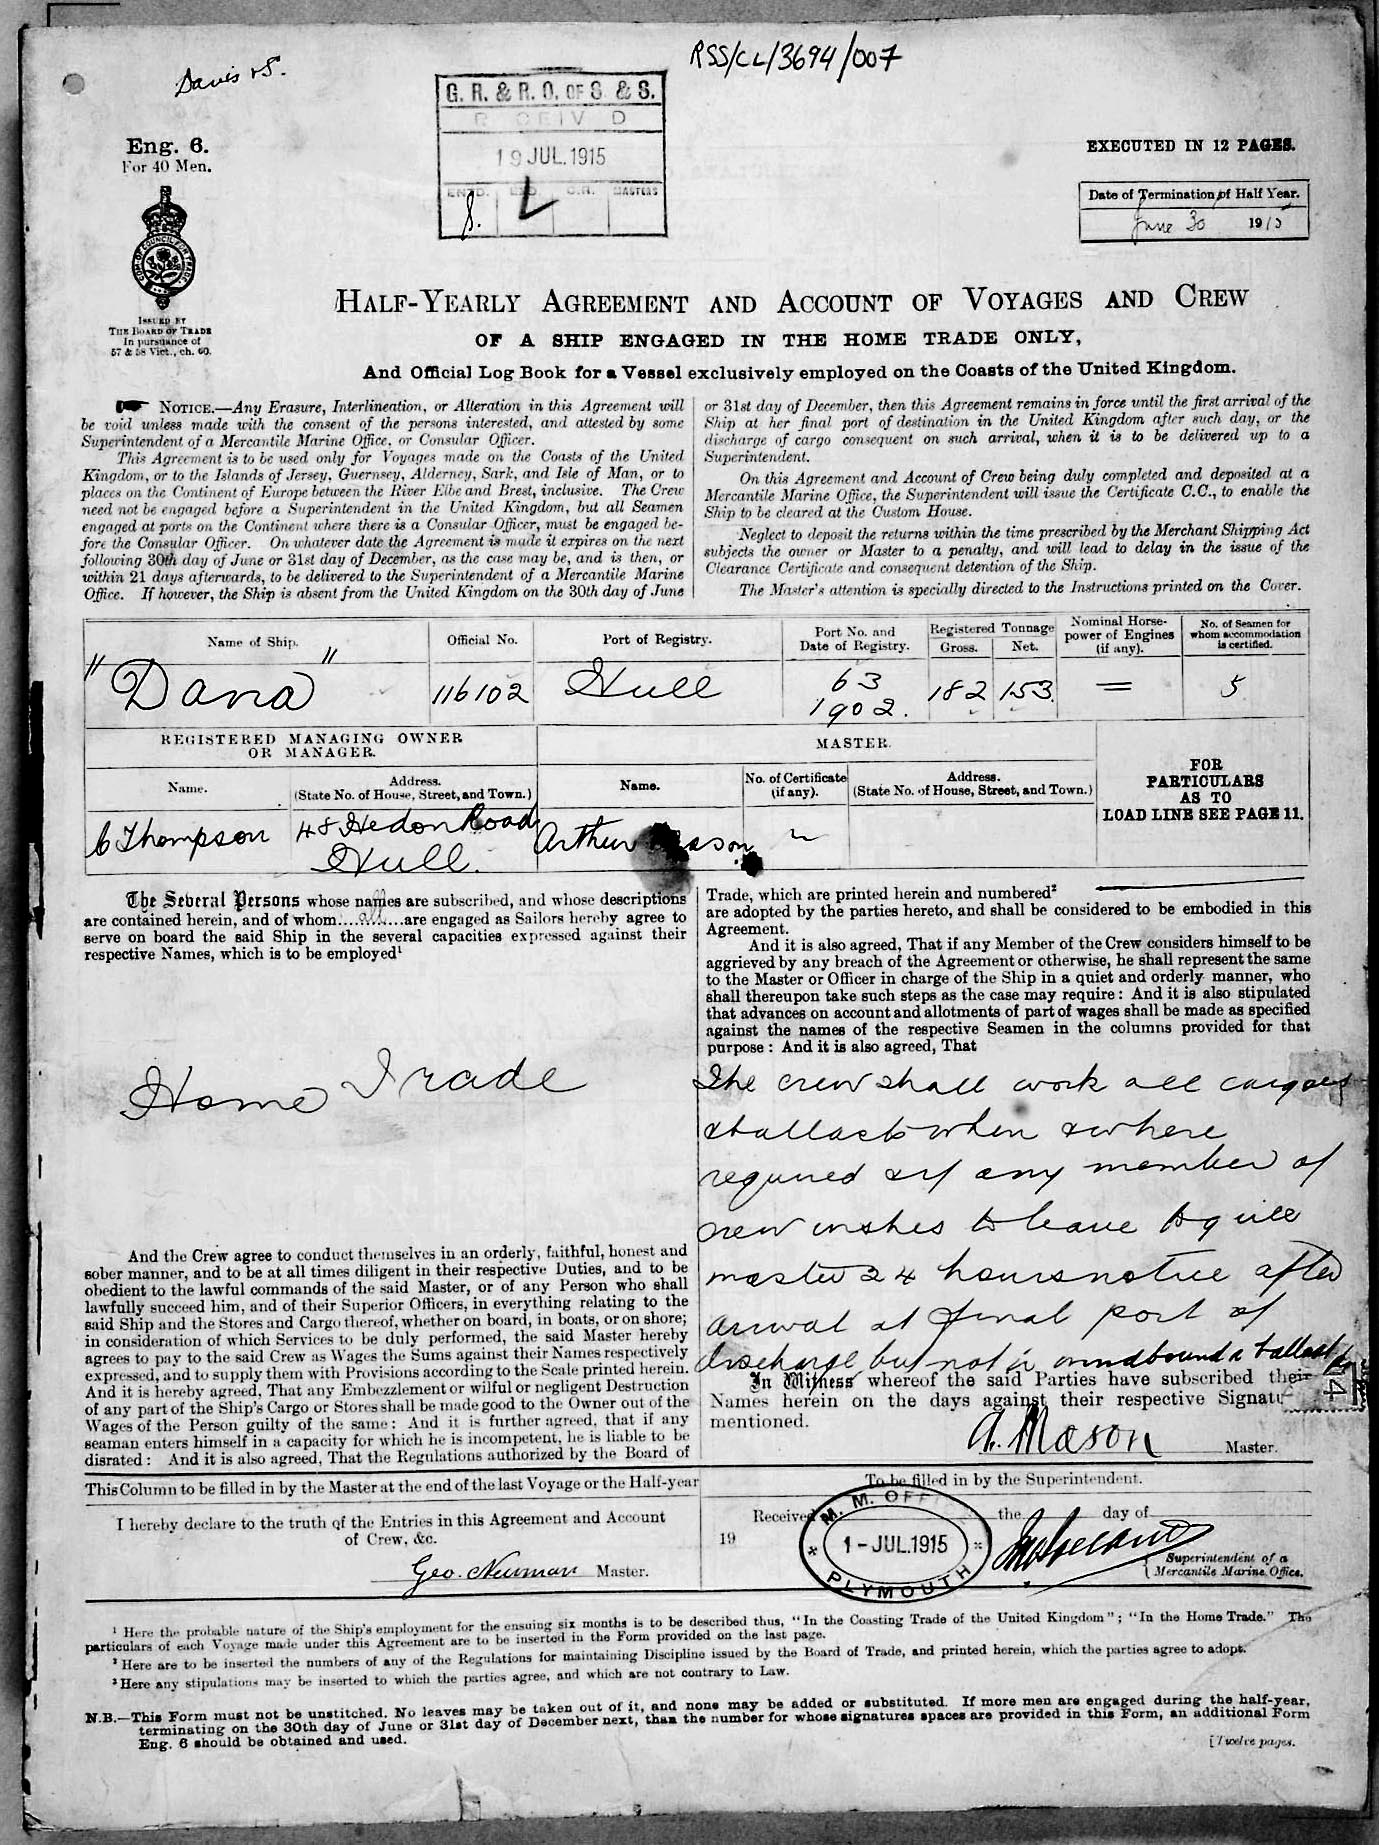 RSS/CL/3694/007
Davis & S.
G. R. & R. O. OF S. & S.
19 JUL. 1915
MASTERS
Eng. 6.
For 40 Men.
EXECUTED IN 12 PAGES.
Date of Termination of Half Year.
June 30 1915
ISSUED BY
THE BOARD OF TRADE
In pursuance of
57 & 58 Vict., ch. 60.
HALF-YEARLY AGREEMENT AND ACCOUNT OF VOYAGES AND CREW
OF A SHIP ENGAGED IN THE HOME TRADE ONLY,
And Official Log Book for a Vessel exclusively employed on the Coasts of the United Kingdom.
NOTICE.—Any Erasure, Interlineation, or Alteration in this Agreement will
be void unless made with the consent of the persons interested, and attested by some
Superintendent of a Mercantile Marine Office, or Consular Officer.
This Agreement is to be used only for Voyages made on the Coasts of the United
Kingdom, or to the Islands of Jersey, Guernsey, Alderney, Sark, and Isle of Man, or to
places on the Continent of Europe between the River Elbe and Brest, inclusive. The Crew
need not be engaged before a Superintendent in the United Kingdom, but all Seamen
engaged at ports on the Continent where there is a Consular Officer, must be engaged be-
fore the Consular Officer. On whatever date the Agreement is made it expires on the next
following 30th day of June or 31st day of December, as the case may be, and is then, or
within 21 days afterwards, to be delivered to the Superintendent of a Mercantile Marine
Office. If however, the Ship is absent from the United Kingdom on the 30th day of June
or 31st day of December, then this Agreement remains in force until the first arrival of the
Ship at her final port of destination in the United Kingdom after such day, or the
discharge of cargo consequent on such arrival, when it is to be delivered up to a
Superintendent.
On this Agreement and Account of Crew being duly completed and deposited at a
Mercantile Marine Office, the Superintendent will issue the Certificate C.C., to enable the
Ship to be cleared at the Custom House.
Neglect to deposit the returns within the time prescribed by the Merchant Shipping Act
subjects the owner or Master to a penalty, and will lead to delay in the issue of the
Clearance Certificate and consequent detention of the Ship.
The Master's attention is specially directed to the Instructions printed on the Cover.
Name of Ship. Official No. Port of Registry. Port No. and Date of Registry. Registered Tonnage Gross. Net. Nominal Horse-power of Engines (if any). No. of Seamen for whom accommodation is certified.
"Dana" 116102 Hull 63 1902. 182 153 = 5
REGISTERED MANAGING OWNER OR MANAGER. MASTER.
Name. Address. (State No. of House, Street, and Town.) Name. No. of Certificate (if any). Address. (State No. of House, Street, and Town.)
FOR PARTICULARS AS TO LOAD LINE SEE PAGE 11.
C Thompson 48 Hedon Road Hull. Arthur Mason
The Several Persons whose names are subscribed, and whose descriptions
are contained herein, and of whom....all....are engaged as Sailors hereby agree to
serve on board the said Ship in the several capacities expressed against their
respective Names, which is to be employed¹
Home Trade
And the Crew agree to conduct themselves in an orderly, faithful, honest and
sober manner, and to be at all times diligent in their respective Duties, and to be
obedient to the lawful commands of the said Master, or of any Person who shall
lawfully succeed him, and of their Superior Officers, in everything relating to the
said Ship and the Stores and Cargo thereof, whether on board, in boats, or on shore;
in consideration of which Services to be duly performed, the said Master hereby
agrees to pay to the said Crew as Wages the Sums against their Names respectively
expressed, and to supply them with Provisions according to the Scale printed herein.
And it is hereby agreed, That any Embezzlement or wilful or negligent Destruction
of any part of the Ship's Cargo or Stores shall be made good to the Owner out of the
Wages of the Person guilty of the same: And it is further agreed, that if any
seaman enters himself in a capacity for which he is incompetent, he is liable to be
disrated: And it is also agreed, That the Regulations authorized by the Board of
Trade, which are printed herein and numbered²
are adopted by the parties hereto, and shall be considered to be embodied in this
Agreement.
And it is also agreed, That if any Member of the Crew considers himself to be
aggrieved by any breach of the Agreement or otherwise, he shall represent the same
to the Master or Officer in charge of the Ship in a quiet and orderly manner, who
shall thereupon take such steps as the case may require: And it is also stipulated
that advances on account and allotments of part of wages shall be made as specified
against the names of the respective Seamen in the columns provided for that
purpose: And it is also agreed, That
The crew shall work all cargoes
& ballast when & where
required & if any member of
crew wishes to leave to give
master 24 hours notice after
arrival at final port of
discharge but not in windbound or ballast
In Witness whereof the said Parties have subscribed their
Names herein on the days against their respective Signatu
mentioned.
A. Mason Master.
This Column to be filled in by the Master at the end of the last Voyage or the Half-year
I hereby declare to the truth of the Entries in this Agreement and Account
of Crew, &c.
Geo. Newman Master.
To be filled in by the Superintendent.
Received the day of
19
M. M. OFF
1-JUL.1915
PLYMOUTH
Superintendent of a
Mercantile Marine Office.
¹ Here the probable nature of the Ship's employment for the ensuing six months is to be described thus, "In the Coasting Trade of the United Kingdom"; "In the Home Trade." The
particulars of each Voyage made under this Agreement are to be inserted in the Form provided on the last page.
² Here are to be inserted the numbers of any of the Regulations for maintaining Discipline issued by the Board of Trade, and printed herein, which the parties agree to adopt.
³ Here any stipulations may be inserted to which the parties agree, and which are not contrary to Law.
N.B.—This Form must not be unstitched. No leaves may be taken out of it, and none may be added or substituted. If more men are engaged during the half-year,
terminating on the 30th day of June or 31st day of December next, than the number for whose signatures spaces are provided in this Form, an additional Form
Eng. 6 should be obtained and used.
[Twelve pages.